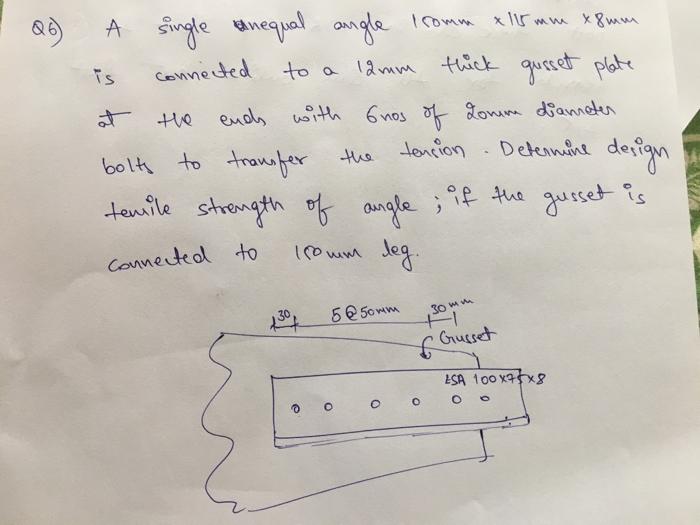 Q6) A single unequal angle 150mm x 115 mm x 8mm
is connected to a 12mm thick gusset plate
at the ends with 6nos of 20mm diameter
bolts to transfer the tension. Determine design
tensile strength of angle ; if the gusset is
connected to 150mm leg.
30 5@50mm 30mm
Gusset
ISA 100x75x8